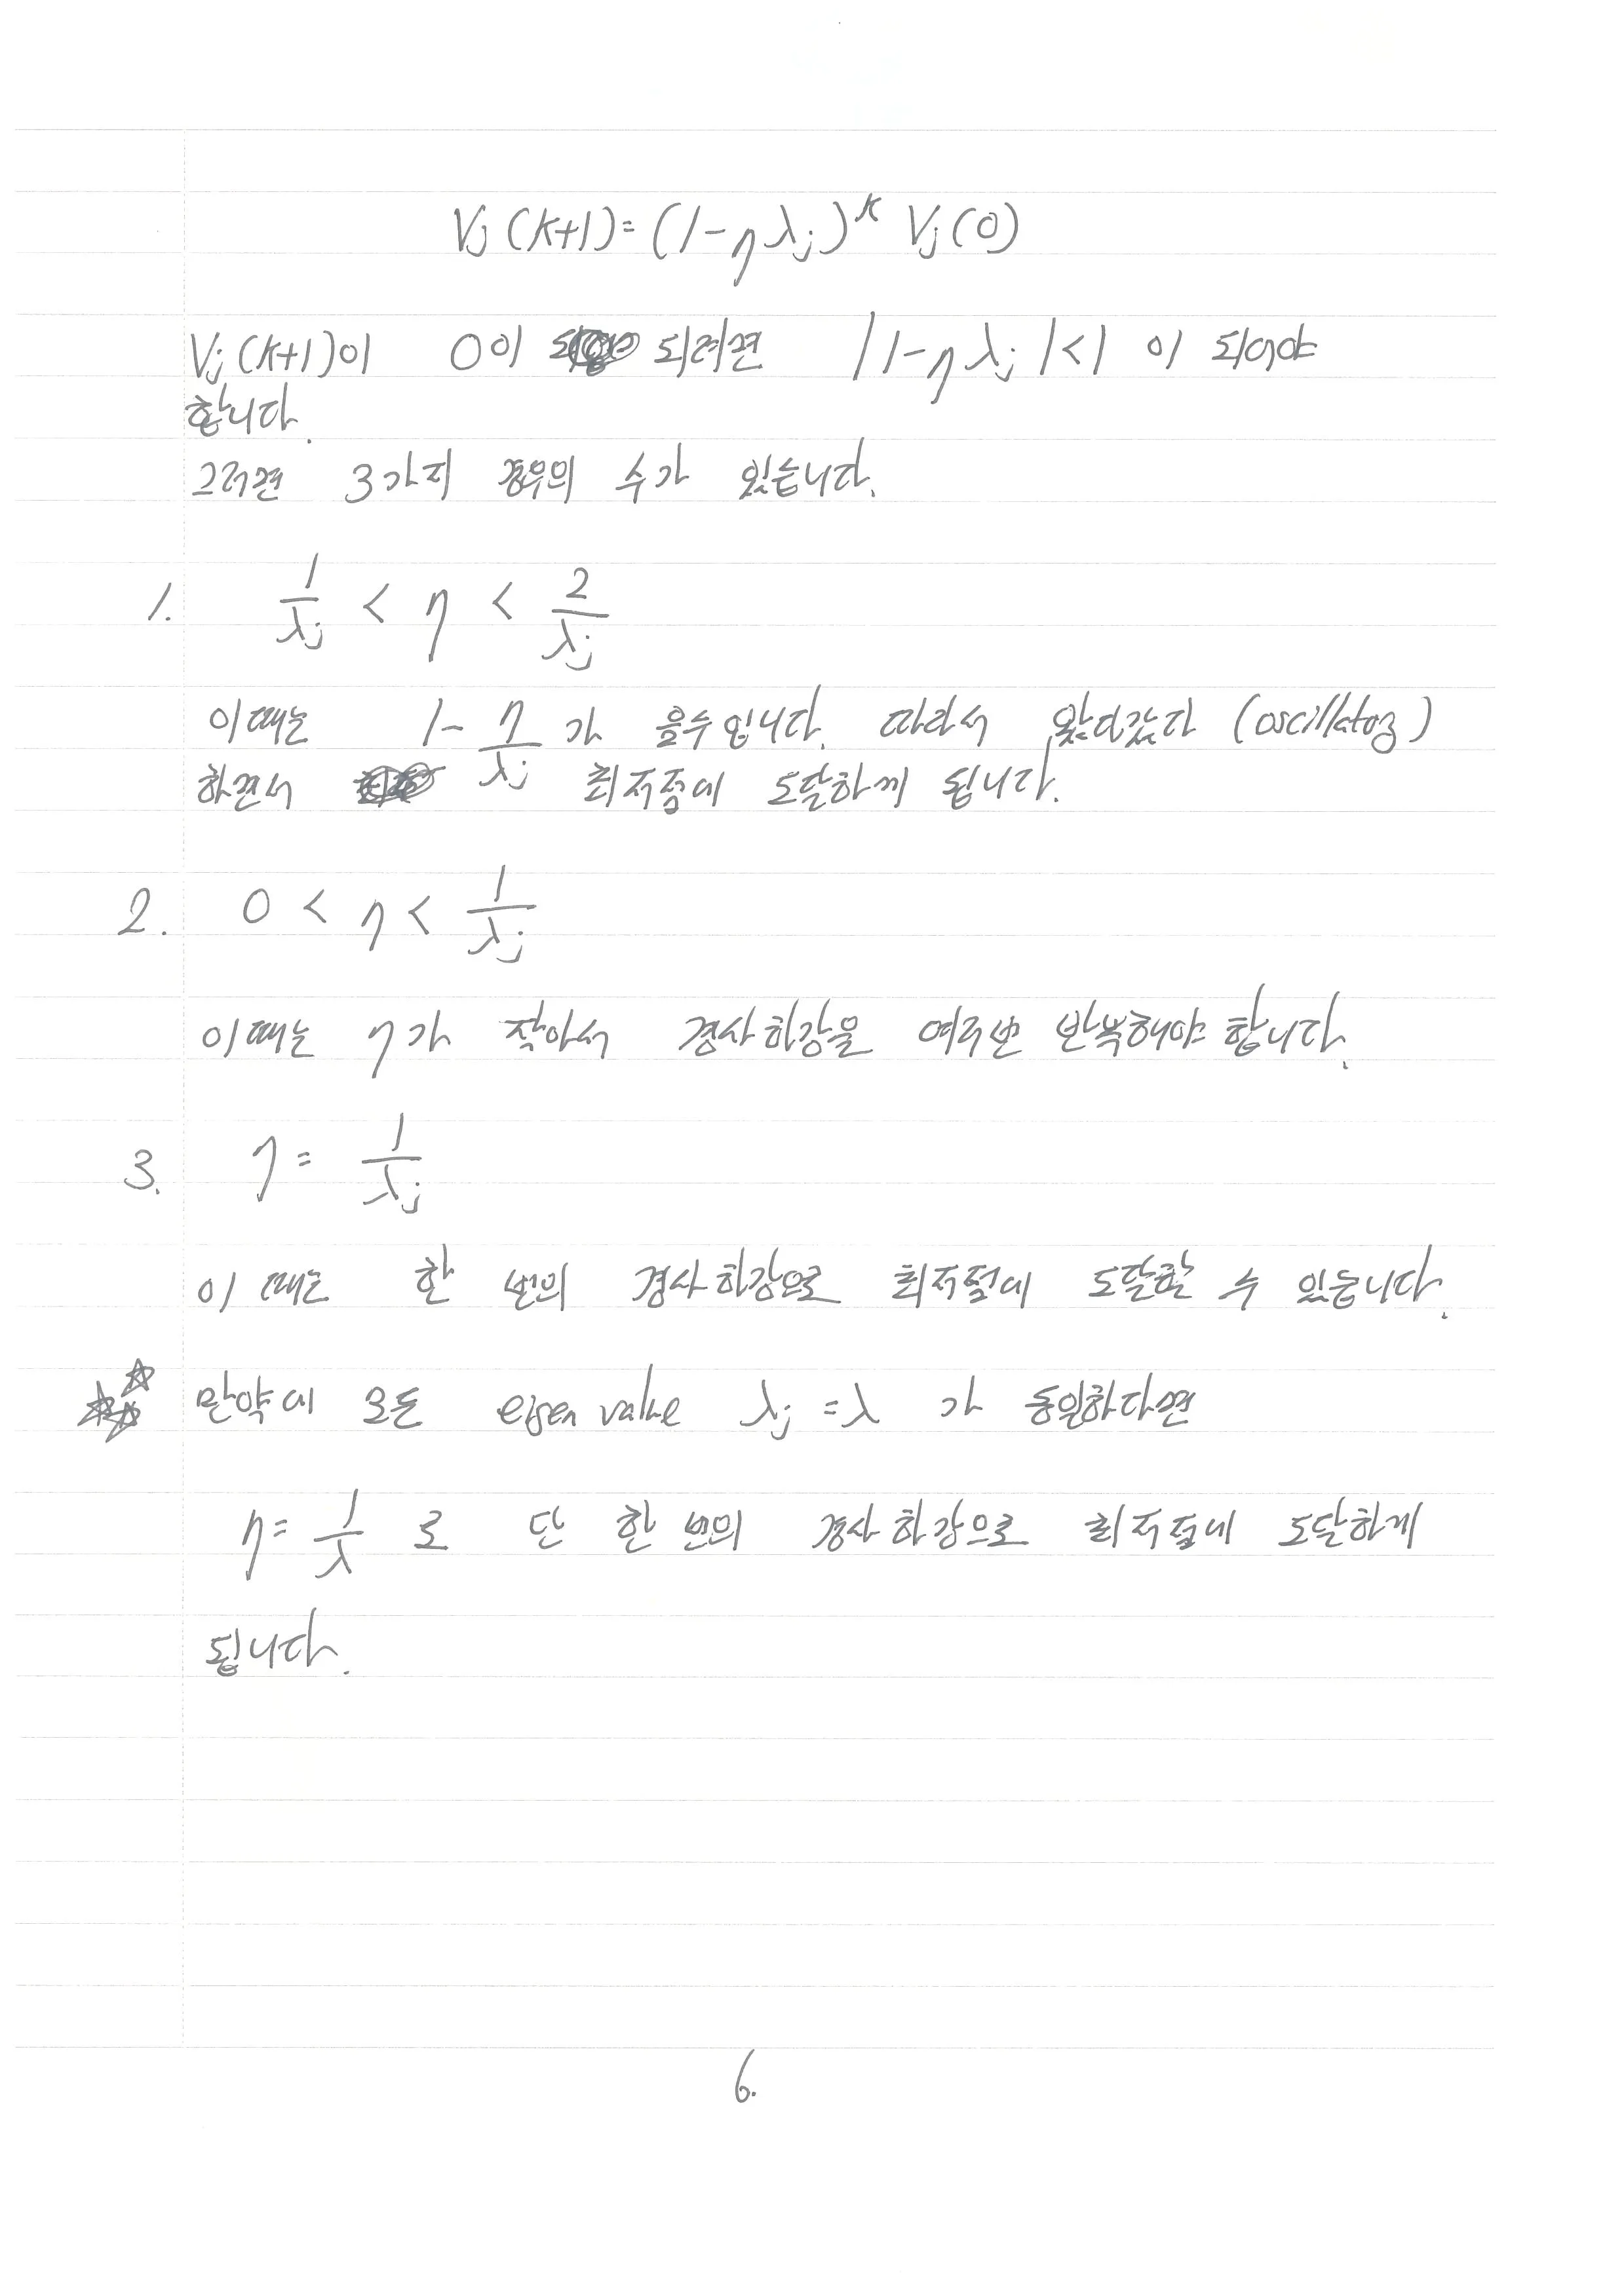 Vj (k+1) = (1-ηλj)^k Vj(0)
Vj(k+1)이 0이 되려면 |1-ηλj|<1 이 되어야
합니다.
그러면 3가지 경우의 수가 있습니다.
1. 1/λj < η < 2/λj
이때는 1 - η/λj 가 음수입니다. 따라서 왔다갔다 (oscillatog)
하면서 최저점에 도달하게 됩니다.
2. 0 < η < 1/λj
이때는 η가 작아서 경사하강을 여러번 반복해야 합니다.
3. η = 1/λj
이때는 한 번의 경사하강으로 최저점에 도달할 수 있습니다.
만약에 모든 eigen value λj = λ 가 동일하다면
η = 1/λ 로 단 한 번의 경사하강으로 최저점에 도달하게
됩니다.
6.